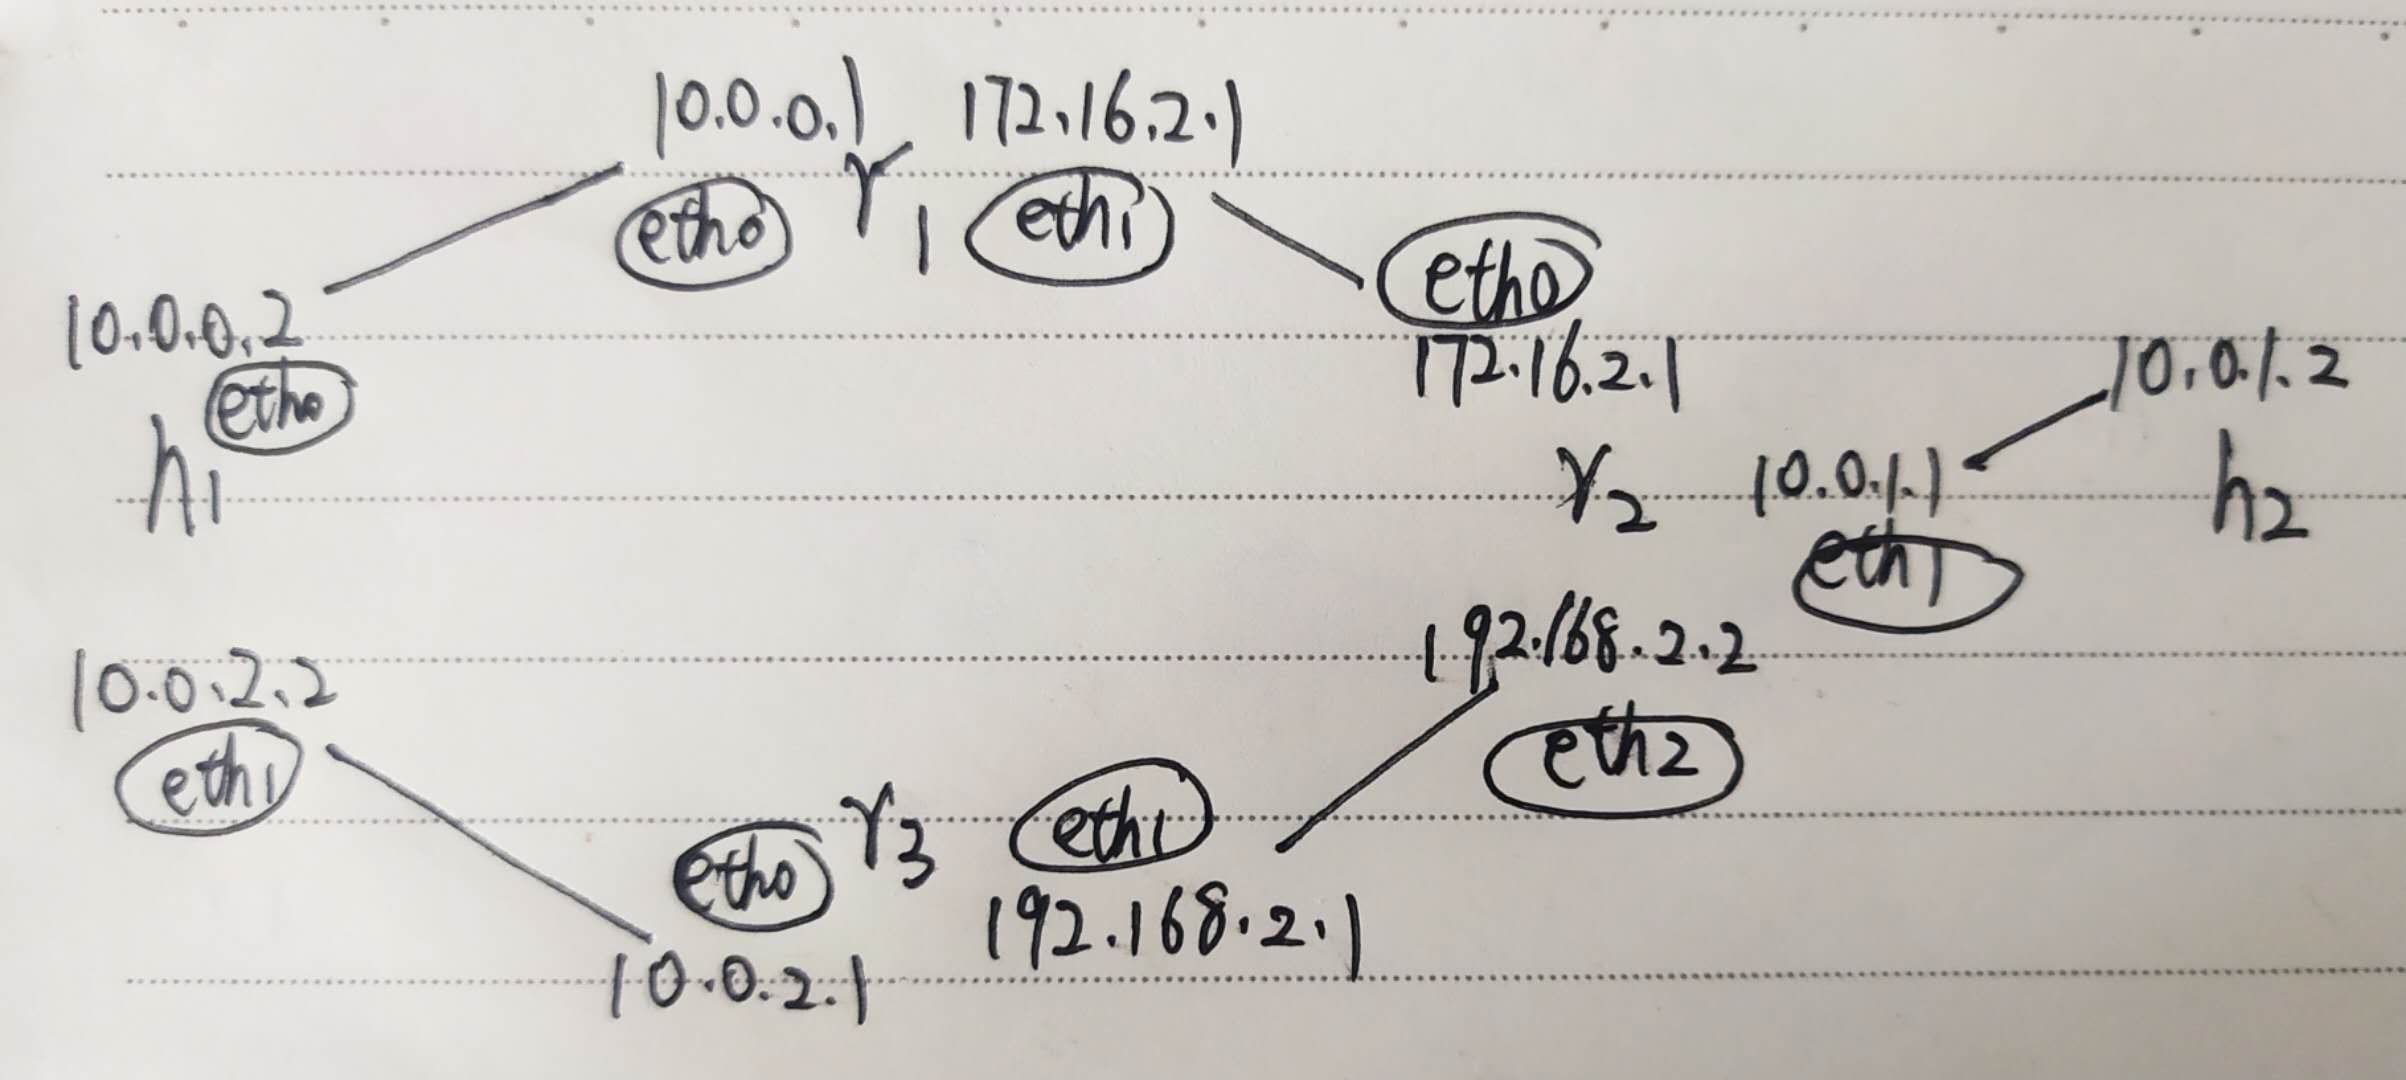 10.0.0.1 r1 172.16.2.1
eth0 eth1
eth0
10.0.0.2
172.16.2.1
10.0.1.2
eth0
h1
r2
10.0.1.1
h2
eth1
192.168.2.2
10.0.2.2
eth2
eth1
eth0 r3 eth1
192.168.2.1
10.0.2.1